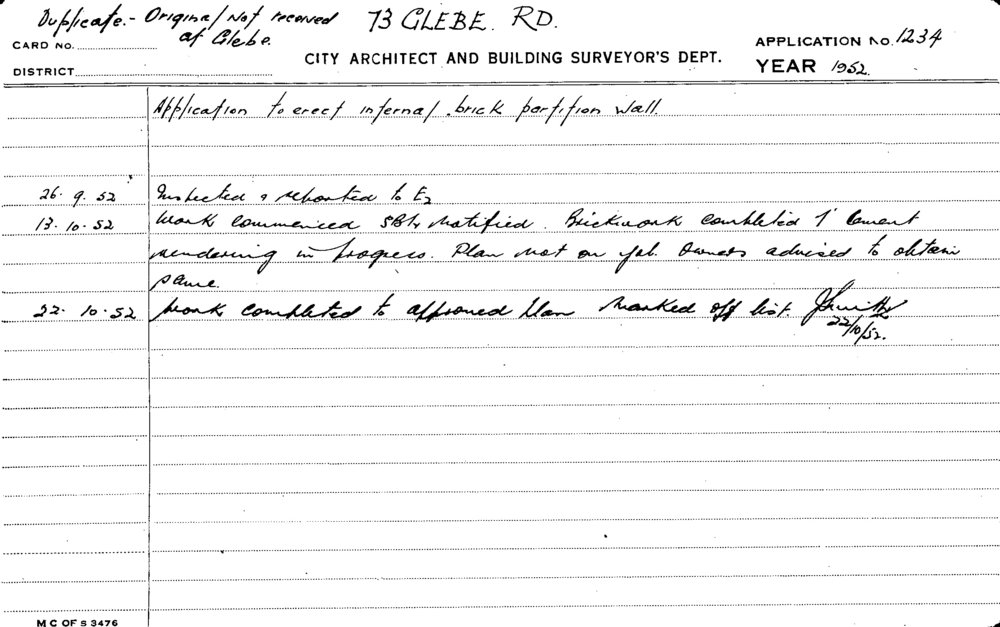 Duplicate.- Original Not received
at Glebe.
73 GLEBE. RD.
CARD NO.
DISTRICT
CITY ARCHITECT AND BUILDING SURVEYOR'S DEPT.
APPLICATION No. 1234
YEAR 1952.
Application to erect internal brick partition wall.
26. 9. 52 Inspected & reported to E2
13. 10. 52 Work commenced notified. Brickwork completed cement
rendering in progress. Plan not on job. Owners advised to obtain
same.
22. 10. 52 Work completed to approved plan marked off list. JSmith
22/10/52.
M C OF S 3476